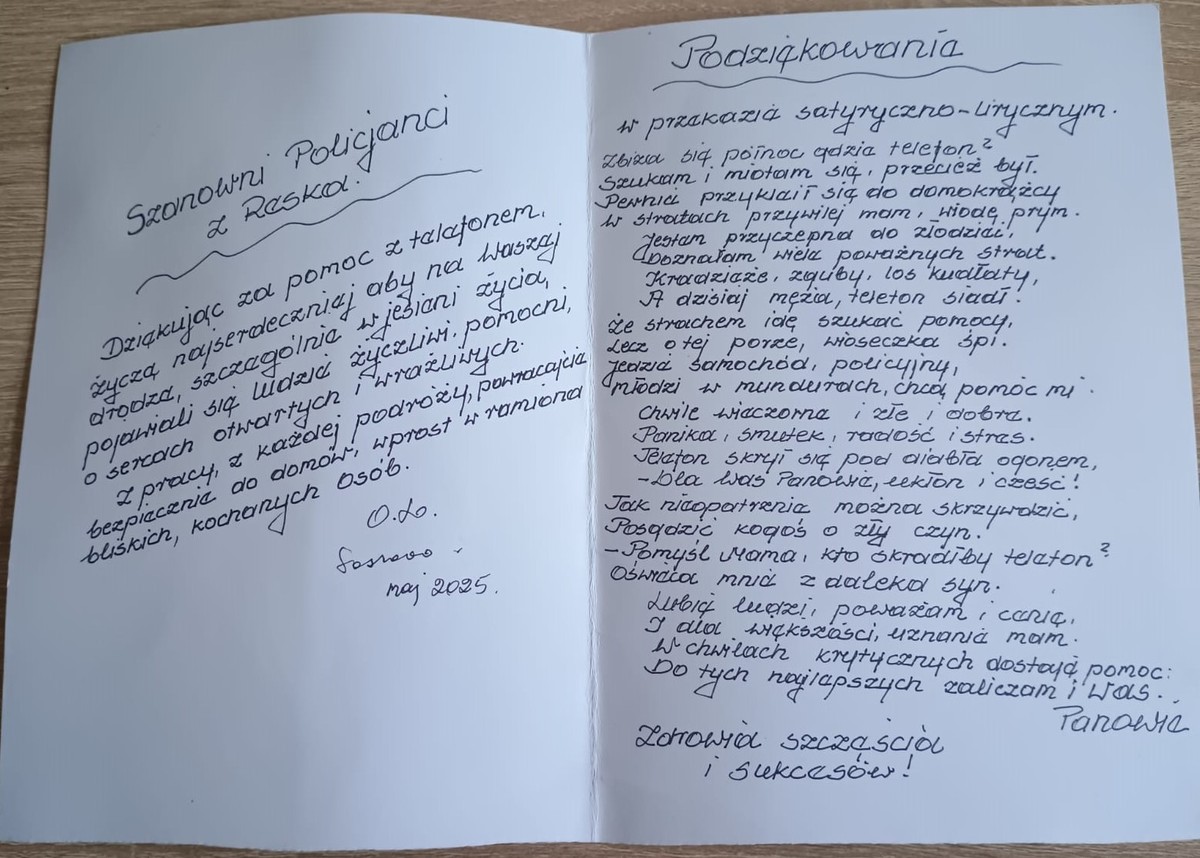 Szanowni Policjanci
z Reska.
Dziękując za pomoc z telefonem,
życzę najserdeczniej aby na Waszej
drodze, szczególnie w jesieni życia,
pojawiali się ludzie życzliwi, pomocni,
o sercach otwartych i wrażliwych.
Z pracy, z każdej podróży, powracajcie
bezpiecznie do domów, wprost w ramiona
bliskich, kochanych osób.
O.Ł.
maj 2025.
Podziękowania
w przekazie satyryczno-lirycznym.
Zbliża się północ gdzie telefon?
Szukam i miotam się, przecież był.
Pewnie przykleił się do domokrążcy
W stratach przywilej mam, wiodę prym.
Jestem przyczepna do złodziei,
Doznałam wiele poważnych strat.
Kradzieże, zguby, los kudłaty,
A dzisiaj męża, telefon siadł.
Ze strachem idę szukać pomocy,
Lecz o tej porze, wioseczka śpi.
Jedzie samochód, policyjny,
Młodzi w mundurach, chcą pomóc mi.
Chwile wieczorne i złe i dobre.
Panika, smutek, radość i stres.
Telefon skrył się pod diabła ogonem,
- Dla Was Panowie, ukłon i cześć!
Jak nieopatrznie można skrzywdzić,
Posądzić kogoś o zły czyn.
- Pomyśl Mama, kto skradłby telefon?
Oświeca mnie z daleka syn.
Lubię ludzi, poważam i cenię,
I dla większości, uznanie mam.
W chwilach krytycznych dostaję pomoc:
Do tych najlepszych zaliczam i Was.
Panowie
Zdrowia szczęścia
i sukcesów!